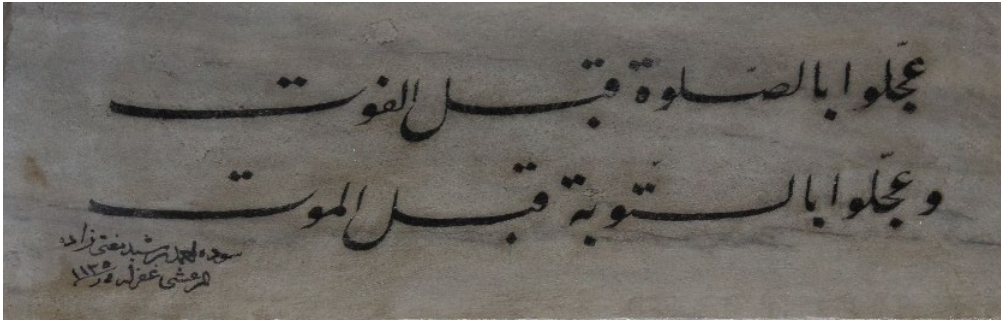 عجّلوا بالصّلوة قبل الفوت
و عجّلوا بالتّوبة قبل الموت
سوده محمد رشيد مفتى زاده
المرعشى غفر له